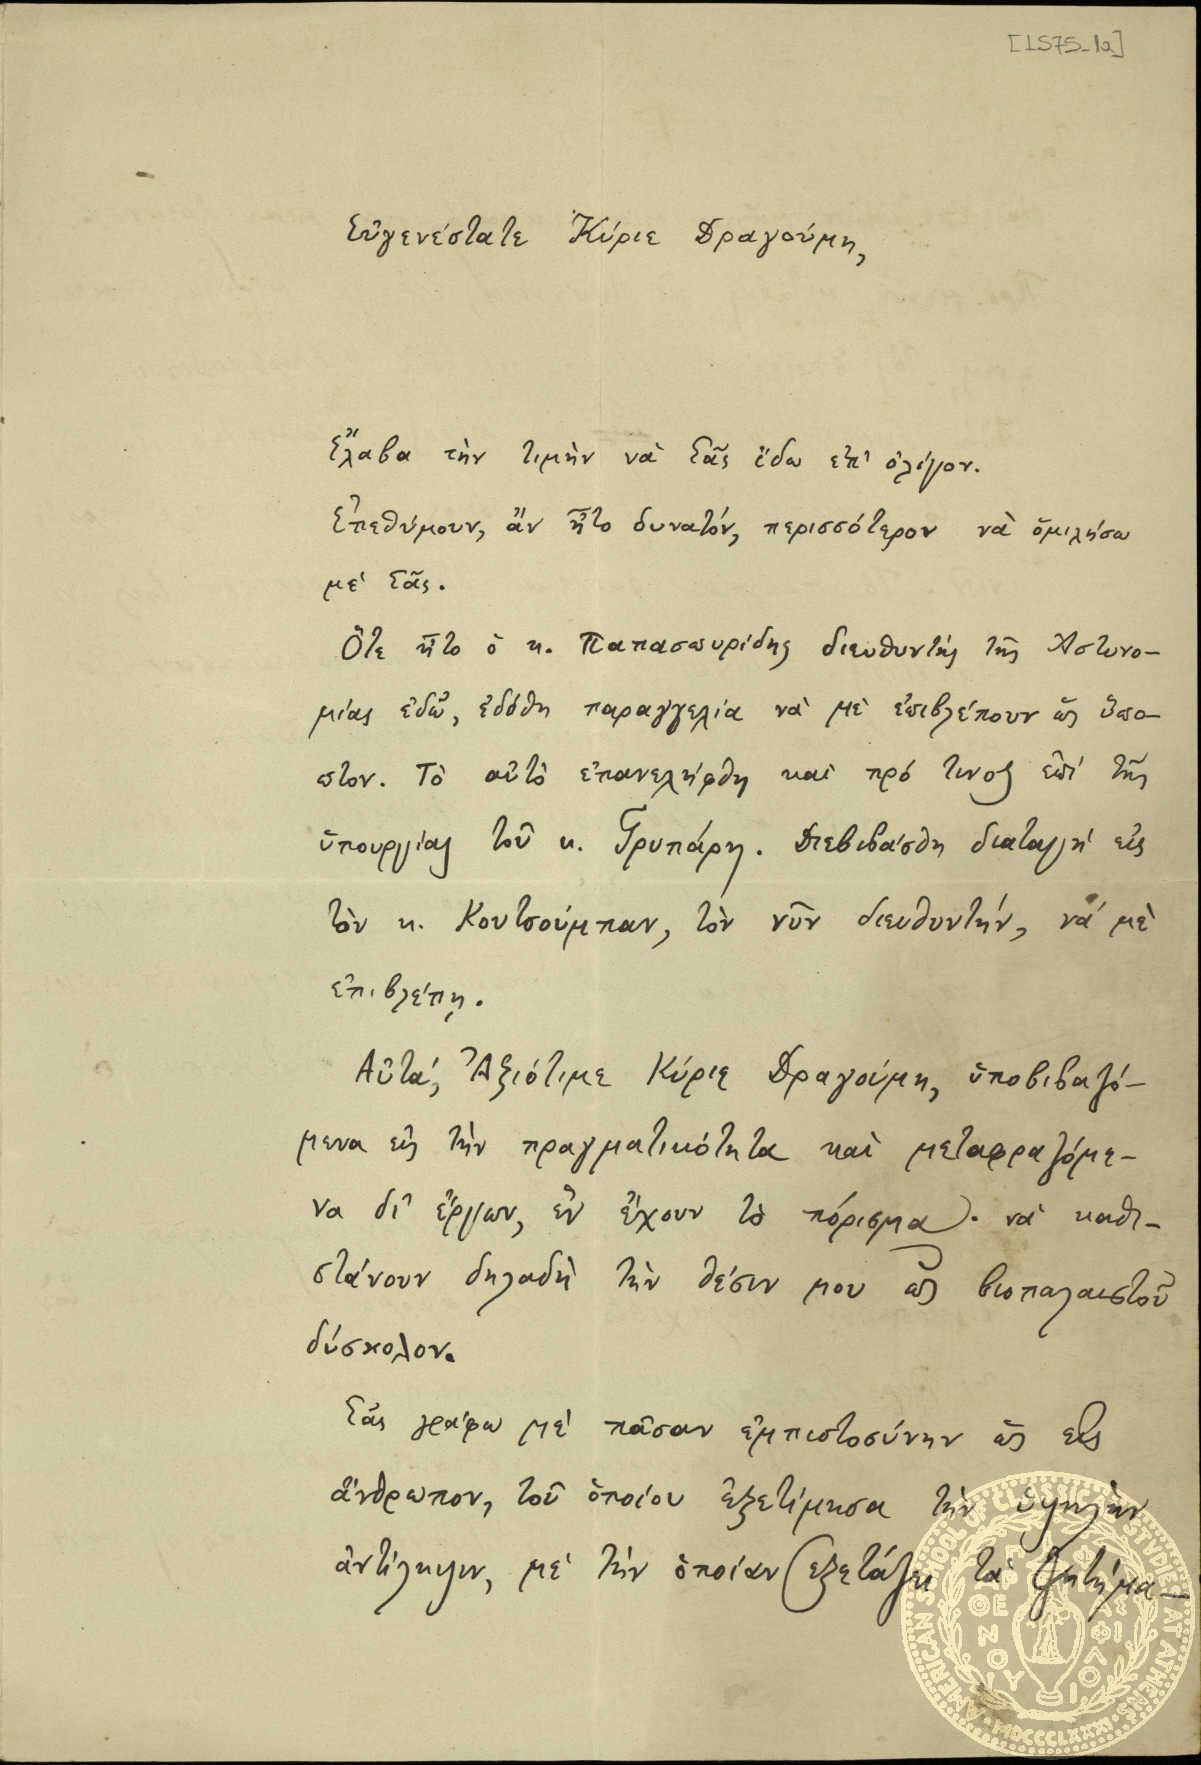 [1575-1a]
Εὐγενέστατε Κύριε Δραγούμη,
Ἔλαβα τὴν τιμὴν νὰ Σᾶς ἴδω ἐπ' ὀλίγον.
Ἐπεθύμουν, ἂν ἦτο δυνατόν, περισσότερον νὰ ὁμιλήσω
μὲ Σᾶς.
Ὅτε ἦτο ὁ κ. Παπασπυρίδης διευθυντὴς τῆς Ἀστυνο-
μίας ἐδῶ, ἐδόθη παραγγελία νὰ μὲ ἐπιβλέπουν ὡς ὕπο-
πτον. Τὸ αὐτὸ ἐπανελήφθη καὶ πρό τινος ἐπὶ τῆς
ὑπουργίας τοῦ κ. Γρυπάρη. Διεβιβάσθη διαταγὴ εἰς
τὸν κ. Κουτσούμπαν, τὸν νῦν διευθυντήν, νὰ μὲ
ἐπιβλέπῃ.
Αὐτά, Ἀξιότιμε Κύριε Δραγούμη, ὑποβιβαζό-
μενα εἰς τὴν πραγματικότητα καὶ μεταφραζόμε-
να δι' ἔργων, ἓν ἔχουν τὸ πόρισμα· νὰ καθι-
στάνουν δηλαδὴ τὴν θέσιν μου ὡς βιοπαλαιστοῦ
δύσκολον.
Σᾶς γράφω μὲ πᾶσαν ἐμπιστοσύνην ὡς εἰς
ἄνθρωπον, τοῦ ὁποίου ἐξετίμησα τὴν ὑψηλὴν
ἀντίληψιν, μὲ τὴν ὁποίαν ἐξετάζει τὰ ζητήμα-
AMERICAN SCHOOL OF CLASSICAL STUDIES AT ATHENS
MDCCCLXXXI
ΠΑΡ
ΘΕ
ΝΟΥ
ΦΙ
ΛΟ